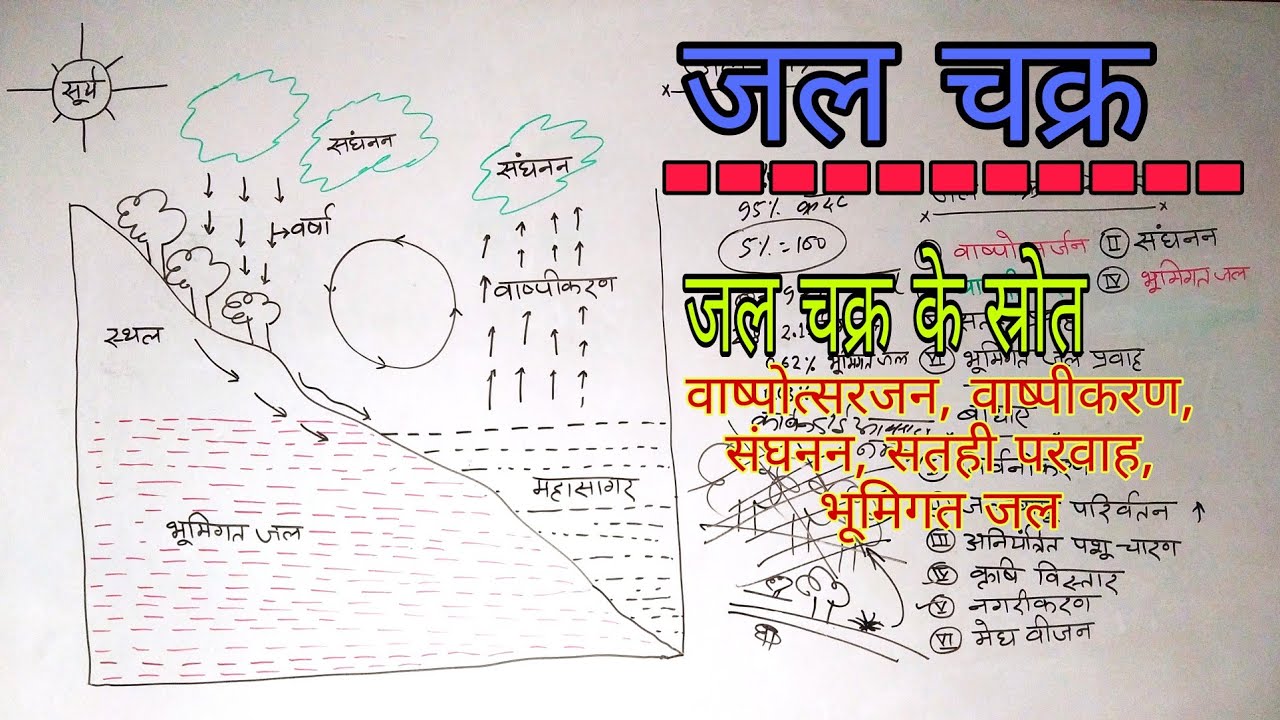 सूर्य
संघनन
संघनन
वर्षा
वाष्पीकरण
स्थल
महासागर
भूमिगत जल
जल चक्र
95%
5% = 100
संघनन
भूमिगत जल
जल चक्र के स्रोत
62% भूमिगत जल
VI भूमिगत जल प्रवाह
वाष्पोत्सरजन, वाष्पीकरण,
संघनन, सतही परवाह,
भूमिगत जल
परिवर्तन ↑
III अनियंत्रित पशु-चारण
IV कृषि विस्तार
V नगरीकरण
VI मेघ वीजन